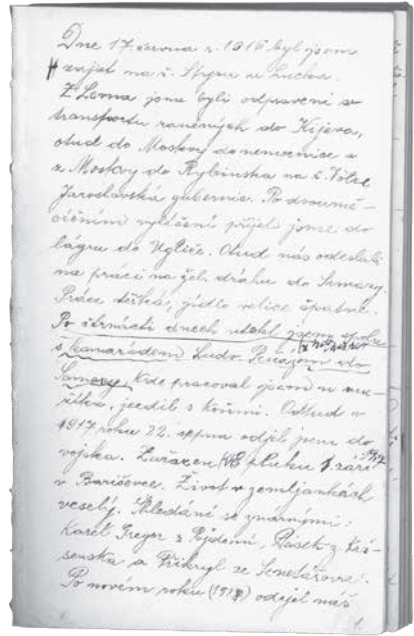 Dne 17. června r. 1916 byl jsem
zajat na ř. Styru u Lucka.
Z Lucka jsme byli odpraveni s
transportu raněných do Kijeva,
otud do Moskvy do nemocnice a
z Moskvy do Rybinska na ř. Volze
Jaroslavská gubernie. Po dvoumě-
síčním vyléčení přijeli jsme do
lágru do Uglič. Otud nás odeslali
na práci na žel. dráhu do Samary.
Práce těžká, jídlo velice špatné.
Po čtrnácti dnech utekl jsem
s kamarádem Ludv. do
Samary, kde pracoval jsem u
jezdil s koňmi. Odtud v
1917 roku 22. srpna odjel jsem do
vojska. Zařazen k 8 pluku 1. září
v Barišovce. Život v zemljankách
veselý. Shledání se známými:
Karel Gregor z Rájdomí, Pásek z
a Přikryl ze Senetářova.
Po novém roku (1918) odejel náš
1.